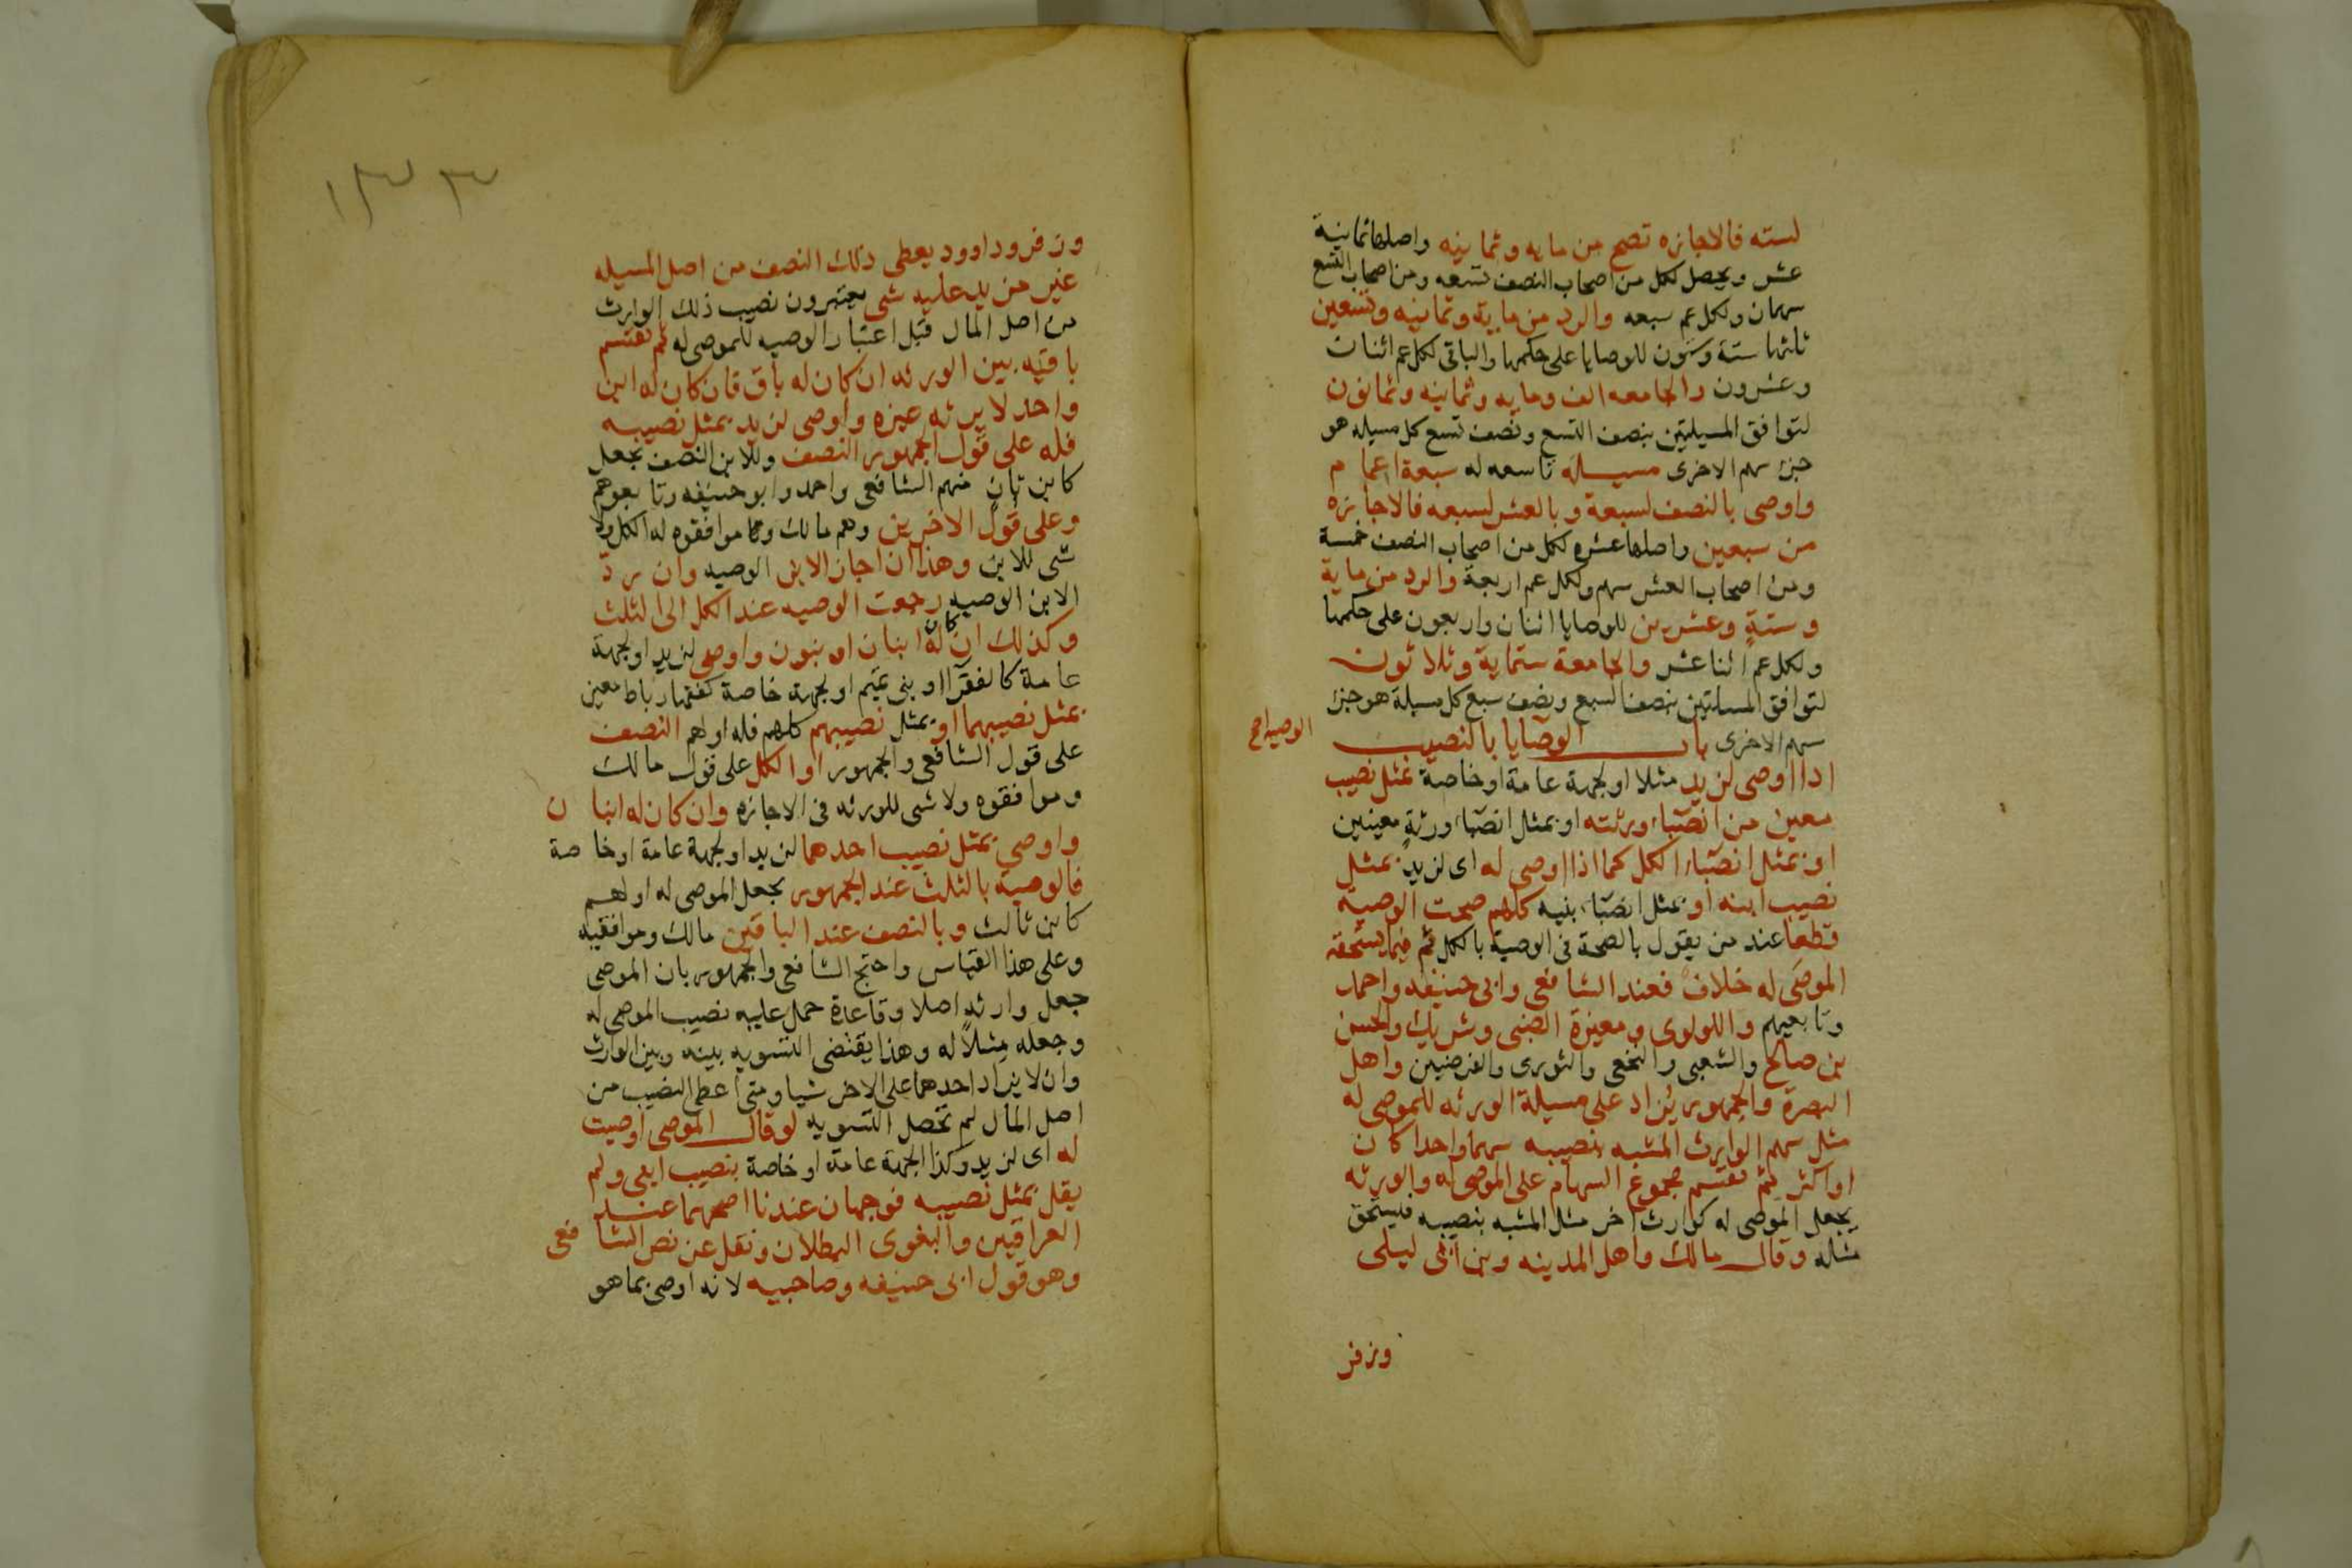 لسته فالاجازه تصح من مايه وثمانيه واصلها ثمانية
عشر ويحصل لكل من اصحاب النصف تسعه ومن اصحاب التسع
سهمان ولكل عم سبعه والرد من ماية وثمانيه وتسعين
ثلثها ستة وستون للوصايا على حكمها والباقي لكل عم اثنان
وعشرون والجامعه الف ومايه وثمانيه وثمانون
لتوافق المسيلتين بنصف التسع ونصف تسع كل مسيله هو
جزء سهم الاخرى مسيلة تاسعه له سبعة اعمام
واوصى بالنصف لسبعة وبالعشر لسبعه فالاجازه
من سبعين واصلها عشره لكل من اصحاب النصف خمسة
ومن اصحاب العشر سهم ولكل عم اربعة والرد من ماية
وستةٍ وعشرين للوصايا اثنان واربعون على حكمها
ولكل عم اثنا عشر والجامعة ستماية وثلاثون
لتوافق المسلتين بنصف السبع ونصف سبع كل مسيلة هو جزء
سهم الاخرى باب الوصايا بالنصيب
اذا اوصى لزيد مثلا او لجهة عامة او خاصة بمثل نصيب
معين من انصباء ورثته او بمثل انصباء ورثةٍ معينين
او بمثل انصباء الكل كما اذا اوصى له اى لزيدٍ بمثل
نصيب ابنه او بمثل انصباء بنيه كلهم صحت الوصية
قطعا عند من يقول بالصحة في الوصية بالكل ثم فيما يستحقه
الموصَى له خلافٌ فعند الشافعى وابى حنيفه واحمد
وتابعيهم واللولوى ومغيرة الضبى وشريك والحسن
بن صالح والشعبى والنخعى والثورى والفرضيين واهل
البصرة والجمهور يُزاد على مسيلة الورثه للموصى له
مثل سهم الوارث المشبه بنصيبه سهما واحدا كان
او اكثر ثم تقسم مجموع السهام على الموصى له والورثه
يجعل الموصى له كوارث اخر مثل المشبه بنصيبه فيستحق
مثله وقال مالك واهل المدينه وبن ابى ليلى
وزفر
الوصيه
١٣٣
وزفر وداوود يعطى ذلك النصف من اصل المسيله
غير مزيد عليه شى يعتبرون نصيب ذلك الوارث
من اصل المال قبل اعتبار الوصيه للموصى له ثم تقسم
باقيه بين الورثه ان كان له باق فان كان له ابن
واحد لا يرثه غيره واوصى لزيد بمثل نصيبه
فله على قول الجمهور النصف وللابن النصف بجعل
كابن ثانٍ منهم الشافعى واحمد وابو حنيفه وتابعوهم
وعلى قول الاخرين وهم مالك وموافقوه له الكل ولا
شى للابن وهذا ان اجاز الابن الوصيه وان ردّ
الابن الوصيه رجعت الوصيه عند الكل الى الثلث
وكذلك ان كان له ابنان او بنون واوصى لزيد او لجهة
عامة كالفقرآ او بنى تميم او لجهة خاصة كفقهاء رباط معين
بمثل نصيبهما او بمثل نصيبهم كلهم فله او لهم النصف
على قول الشافعى والجمهور او الكل على قول مالك
وموافقوه ولا شى للورثه في الاجازه وان كان له ابنان
واوصى بمثل نصيب احدهما لزيد او لجهة عامة او خاصة
فالوصية بالثلث عند الجمهور بجعل الموصى له او لهم
كابن ثالث وبالنصف عند الباقين مالك وموافقيه
وعلى هذا القياس واحتج الشافعى والجمهور بان الموصى
جعل وارثه اصلا وقاعدة حمل عليه نصيب الموصى له
وجعله مثلاً له وهذا يقتضى التسويه بينه وبين الوارث
وان لا يزاد احدهما على الاخر شيا ومتى اعطى النصيب من
اصل المال لم تحصل التسويه لو قال الموصى اوصيت
له اى لزيد وكذا لجهة عامة او خاصة بنصيب ابنى ولم
يقل بمثل نصيبه فوجهان عندنا اصحهما عند
العراقيين والبغوى البطلان ونقل عن نص الشافعى
وهو قول ابى حنيفه وصاحبيه لانه اوصى بما هو